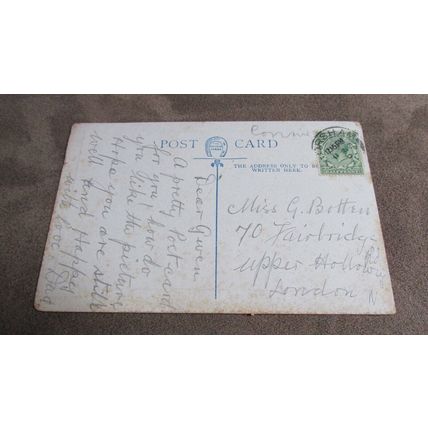 POST CARD
THE ADDRESS ONLY TO BE
WRITTEN HERE.
Dear Gwen
A pretty Postcard
for you how do
you like the picture
Hope you are still
well and Happy
with love Dad
Miss G. Botten
70 Fairbridge
Upper Hollow
London
N